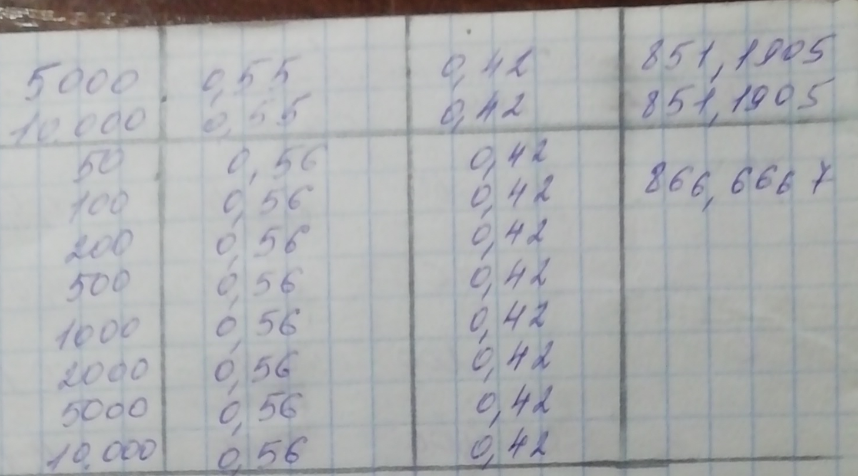 5000 0,55 0,42 851,1905
10.000 0,55 0,42 851,1905
50 0,56 0,42
100 0,56 0,42 866,6667
200 0,56 0,42
500 0,56 0,42
1000 0,56 0,42
2000 0,56 0,42
5000 0,56 0,42
10.000 0,56 0,42